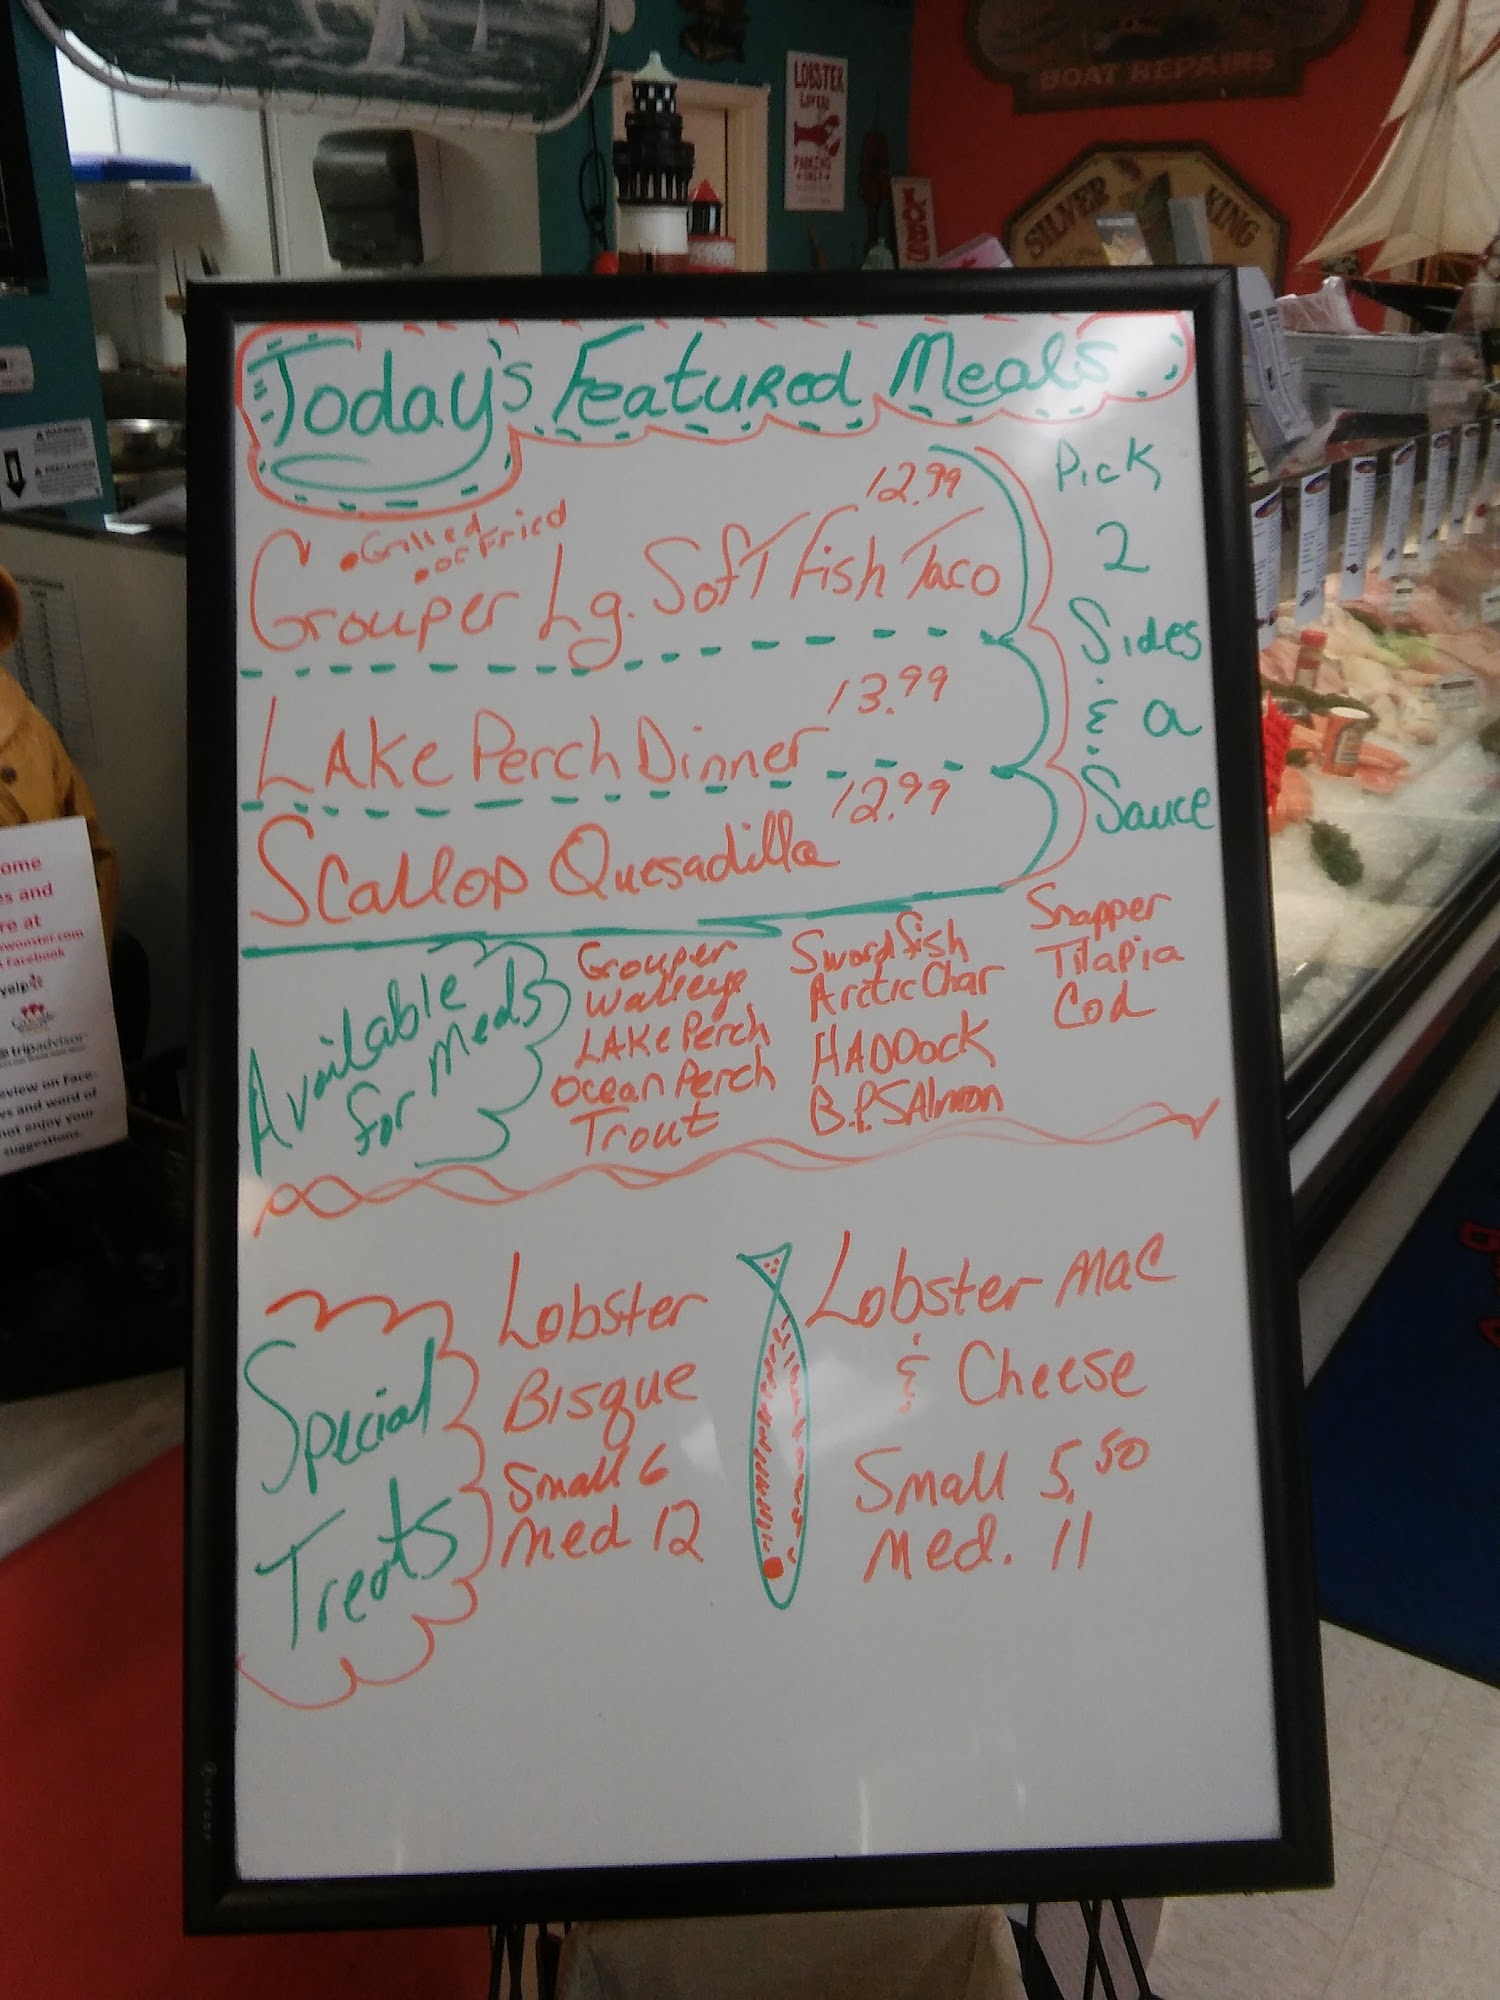 BOAT REPAIRS
LOBSTER
LOVERS
PARKING
ONLY
SILVER KING
LOBST
WARNING
PRECAUCION
Today's Featured Meals
12.99
• Grilled
• or Fried
Grouper Lg. Soft Fish Taco
13.99
Lake Perch Dinner
12.99
Scallop Quesadilla
Pick
2
Sides
& a
Sauce
Available
for Meals
Grouper
Walleye
Lake Perch
Ocean Perch
Trout
Swordfish
Arctic Char
Haddock
B.P. Salmon
Snapper
Tilapia
Cod
Special
Treats
Lobster
Bisque
Small 6
Med 12
Lobster Mac
& Cheese
Small 5.50
Med. 11
ome
es and
re at
wooster.com
n Facebook
yelp
Google
tripadvisor
eview on Face-
ws and word of
not enjoy your
suggestions.